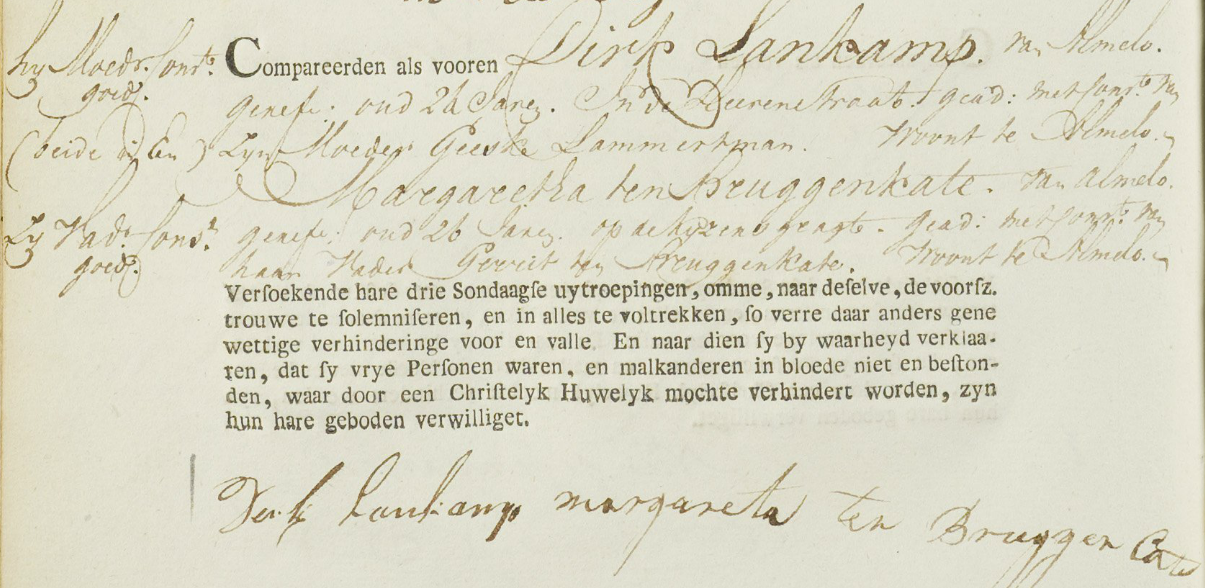 hy Moedr. Consts. goed.
(beide in En)
Zy Vadr. Const. goed.
Compareerden als vooren Dirk Lankamp. van Almelo.
geref: oud 24 Jaren. In de Deerenstraat. gead: met Const. van
Zyn Moeder Geeske Lammertman. Woont te Almelo.
& Margaretha ten Bruggenkate. van Almelo.
geref: oud 26 Jaren. op de Keizersgragt. gead: met Const. van
haar Vader Gerrit ten Bruggenkate. Woont te Almelo.
Versoekende hare drie Sondaagse uytroepingen, omme, naar deselve, de voorsz.
trouwe te solemniseren, en in alles te voltrekken, so verre daar anders gene
wettige verhinderinge voor en valle. En naar dien sy by waarheyd verklaa-
ren, dat sy vrye Personen waren, en malkanderen in bloede niet en beston-
den, waar door een Christelyk Huwelyk mochte verhindert worden, zyn
hun hare geboden verwilliget.
Derk Lankamp margareta ten Bruggen Cate